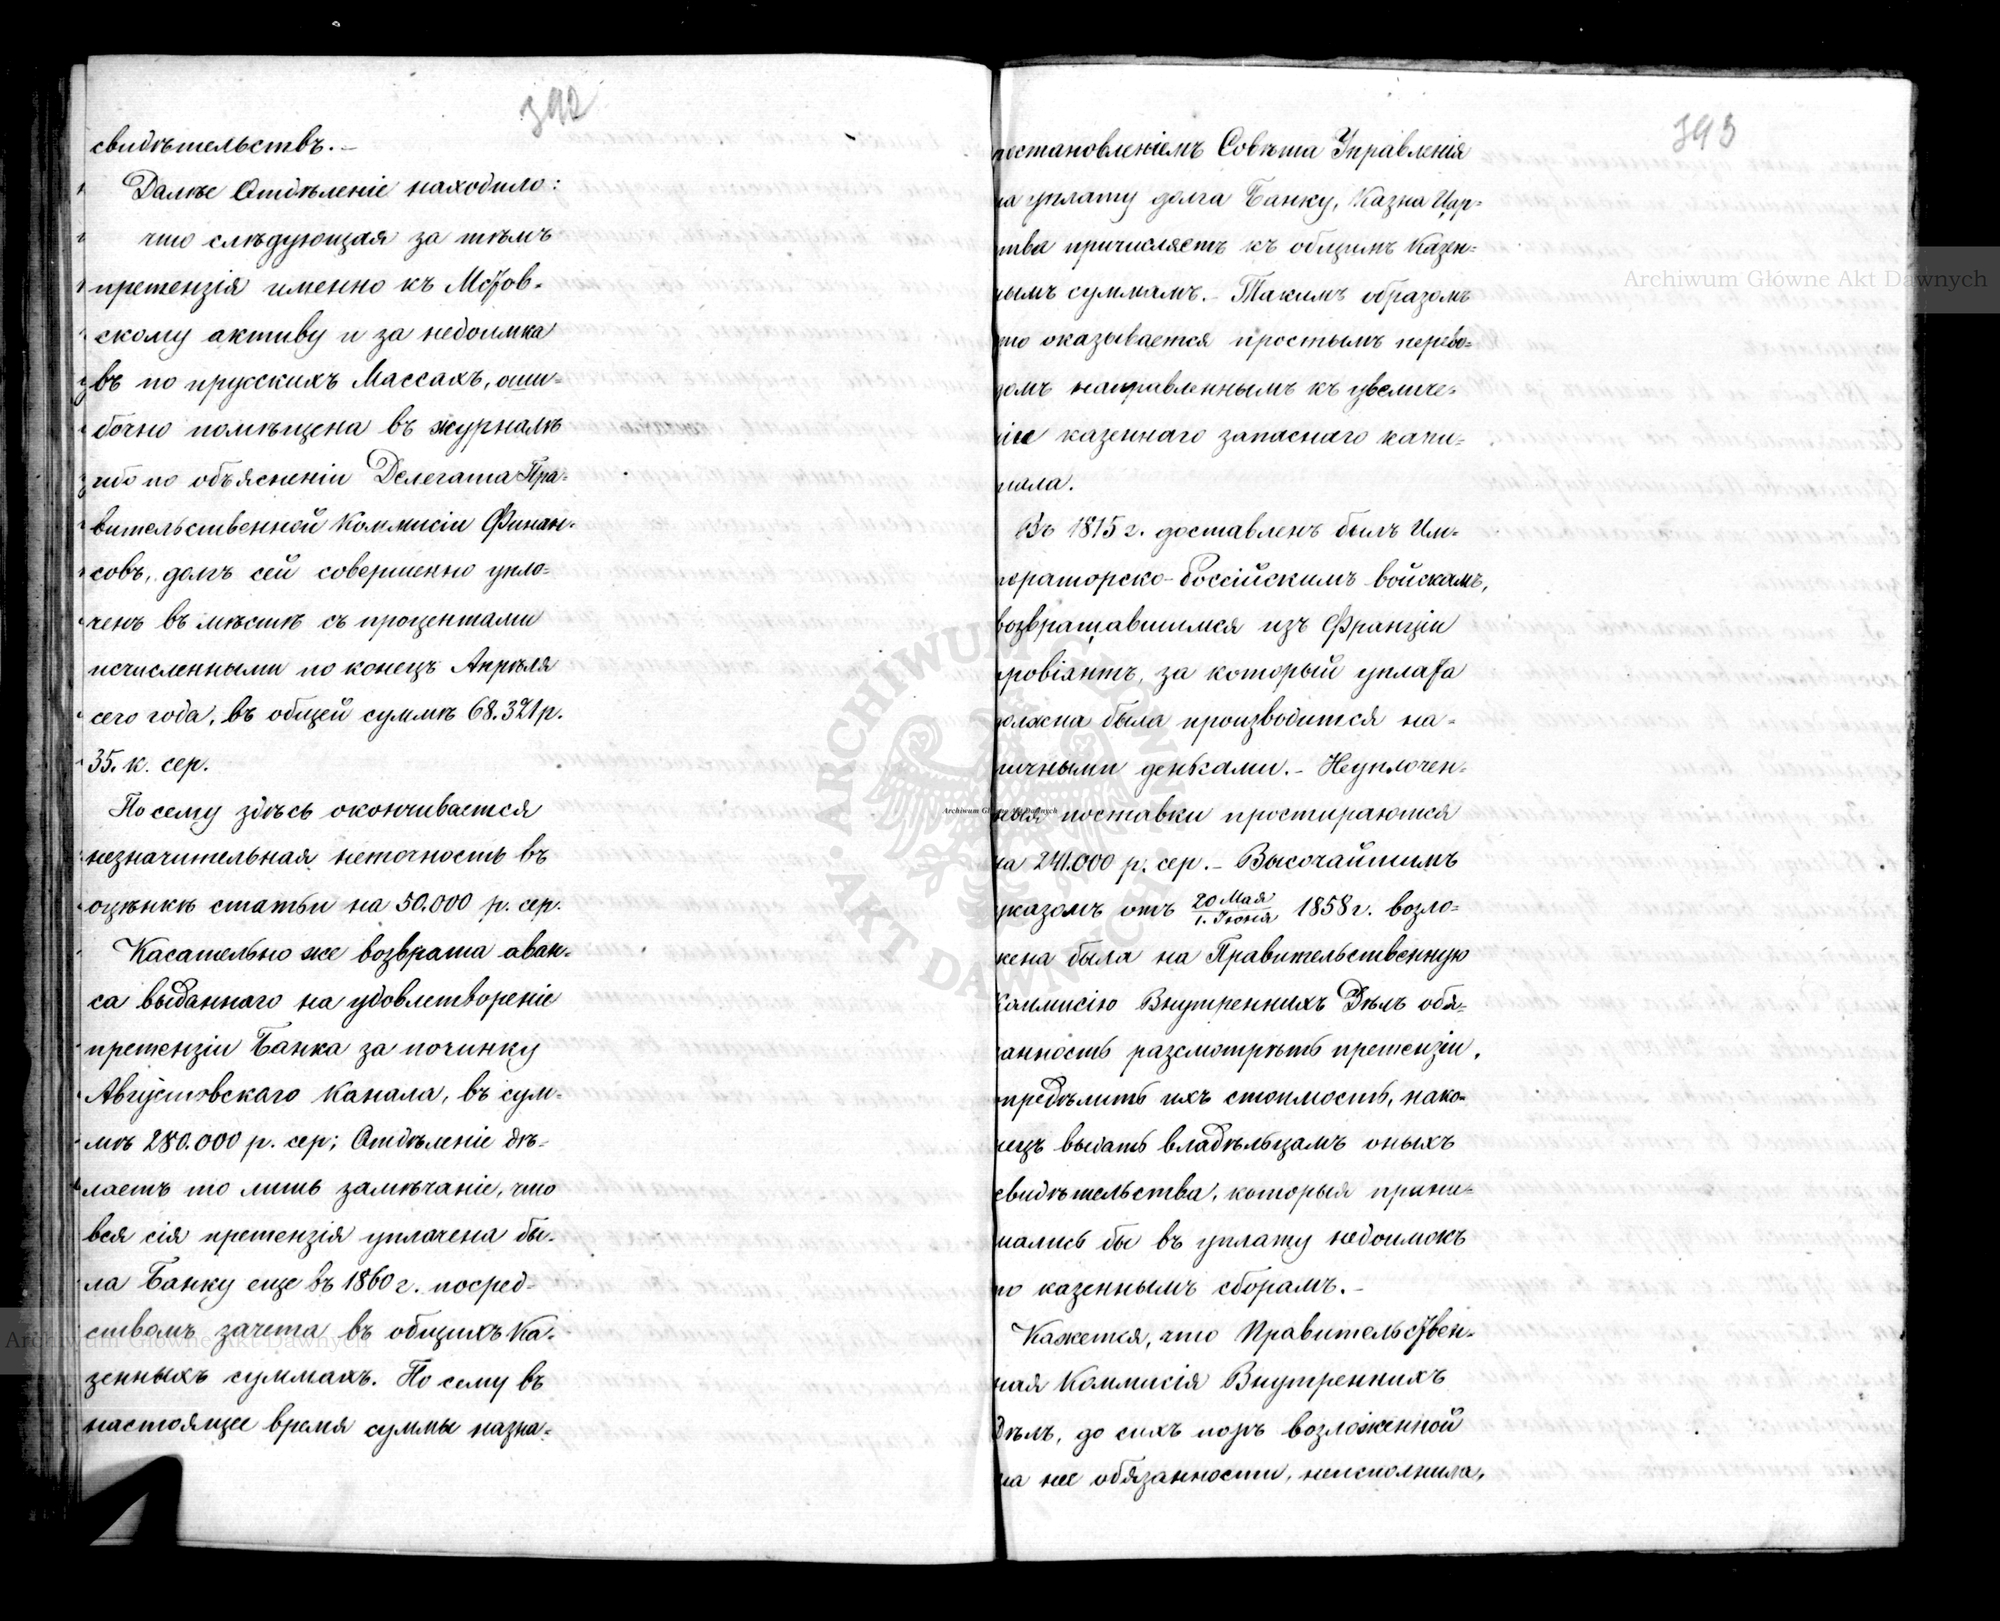 392
свидѣтельствъ.—
Далѣе Отдѣленіе находило:
что слѣдующая за тѣмъ
претензія именно къ
скому активу и за недоимка
въ по прусскихъ Массахъ, оши=
бочно помѣщена въ журналѣ
ибо по объясненіи Делегата Пра=
вительственной Коммисіи Финан=
совъ, долгъ сей совершенно упло=
ченъ въ мѣстѣ съ процентами
исчисленными по конецъ Апрѣля
сего года, въ общей суммѣ 68.321 р.
35. к. сер.
По сему здѣсь оканчивается
незначительная неточность въ
оцѣнкѣ статьи на 50.000 р. сер.
Касательно же возврата аван=
са выданнаго на удовлетвореніе
претензіи Банка за починку
Августовскаго Канала, въ сум=
мѣ 280.000 р. сер; Отдѣленіе дѣ=
лаетъ то лишь замѣчаніе, что
вся сія претензія уплачена бы=
ла Банку еще въ 1860 г. посред=
ствомъ зачета въ общихъ Ка=
зенныхъ суммахъ. По сему въ
настоящее время суммы назна=
393
постановленіемъ Совѣта Управленія
на уплату долга Банку, Казна Цар=
тва причисляетъ къ общимъ Казен=
нымъ суммамъ.— Такимъ образомъ
то оказывается простымъ перево=
домъ направленнымъ къ увеличе=
ніе казеннаго запаснаго капи=
тала.
Въ 1815 г. доставленъ былъ Им=
ператорско-Россійскимъ войскамъ,
возвращавшимся изъ Франціи
провіантъ, за который уплата
должна была производится на=
личными деньгами.— Неуплочен=
ныя поставки простираются
на 241.000 р. сер.— Высочайшимъ
указомъ отъ 20 Мая / 1. Іюня 1858 г. возло=
жена была на Правительственную
Коммисію Внутреннихъ Дѣлъ обя=
занность разсмотрѣть претензіи,
опредѣлить ихъ стоимость, нако=
нецъ выдать владѣльцамъ оныхъ
свидѣтельства, которыя прини=
мались бы въ уплату недоимокъ
по казеннымъ сборамъ.—
Кажется, что Правительствен=
ная Коммисія Внутреннихъ
Дѣлъ, до сихъ поръ возложенной
на нее обязанности, неисполнила,
Archiwum Główne Akt Dawnych
Archiwum Główne Akt Dawnych
Archiwum Główne Akt Dawnych